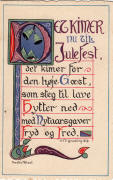 DET KIMER
NU TIL
Julefest,
det kimer for
den høje Gæst,
som steg til lave
Hytter ned
med Nytaarsgaver
Fryd og Fred.
Grundtvig